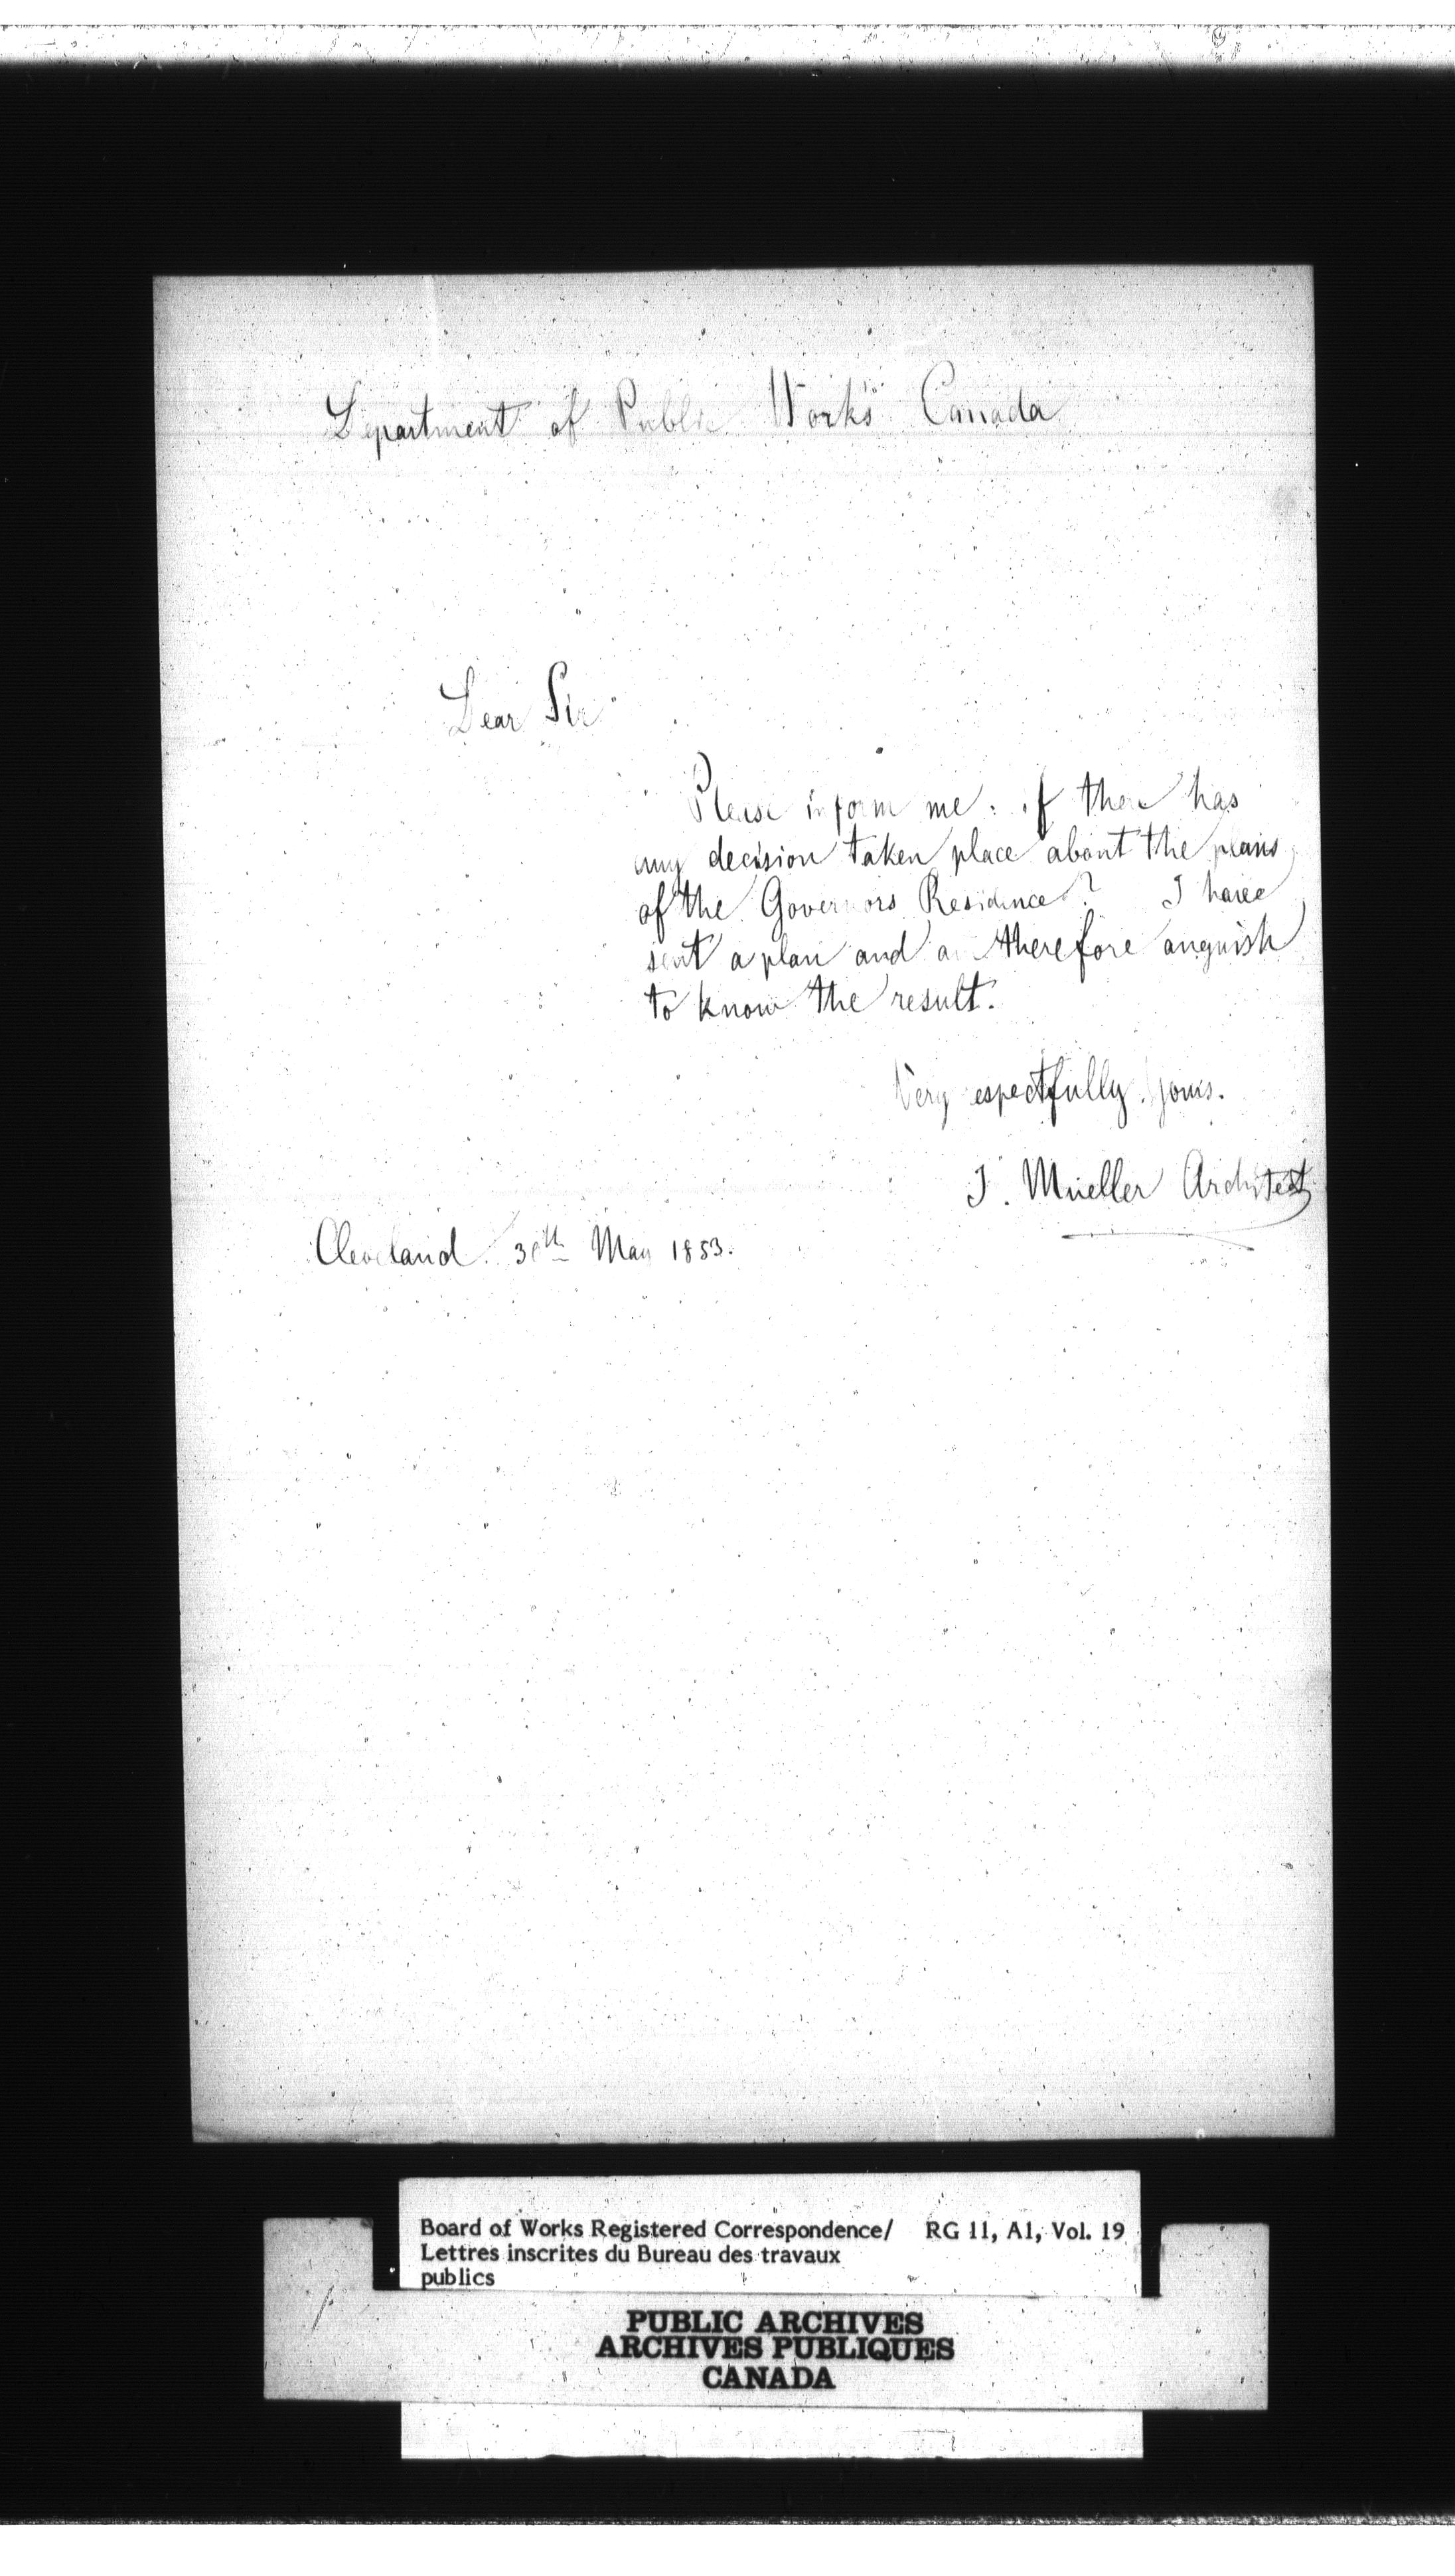 Department of Public Work's Canada
Dear Sir
Please inform me: if there has
any decision taken place about the plans
of the Governors Residence? I have
sent a plan and am therefore anguish
to know the result.
Very respectfully yours.
J. Mueller Architect
Cleveland. 30th May 1853.
Board of Works Registered Correspondence/ RG 11, A1, Vol. 19
Lettres inscrites du Bureau des travaux
publics
PUBLIC ARCHIVES
ARCHIVES PUBLIQUES
CANADA